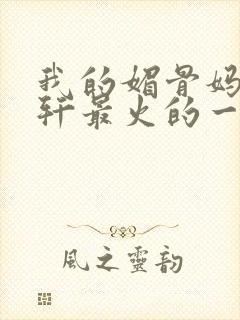 我的媚骨妈
轩最火的一
風之靈韵